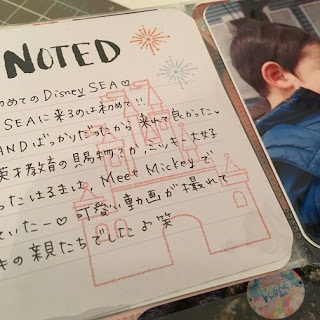 NOTED
初めてのDisney SEA♡
SEAに来るのは初めて!!
ANDばっかりだったから来れて良かった。
英才教育の賜物?か、ミッキー大好
ったはるまは、Meet Mickeyで
ていたー♡可愛い動画が撮れて
キの親たちでしたよ笑